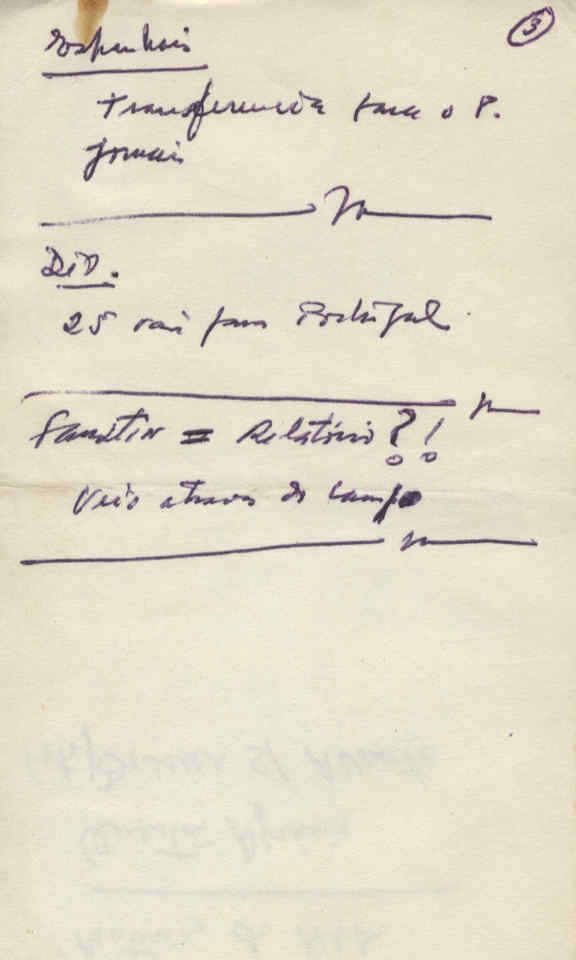 3
Espanhois
Transferencia para o P.
Jornais
Div.
25 vai para Portugal.
= Relatório ?!
Veio atraves do campo